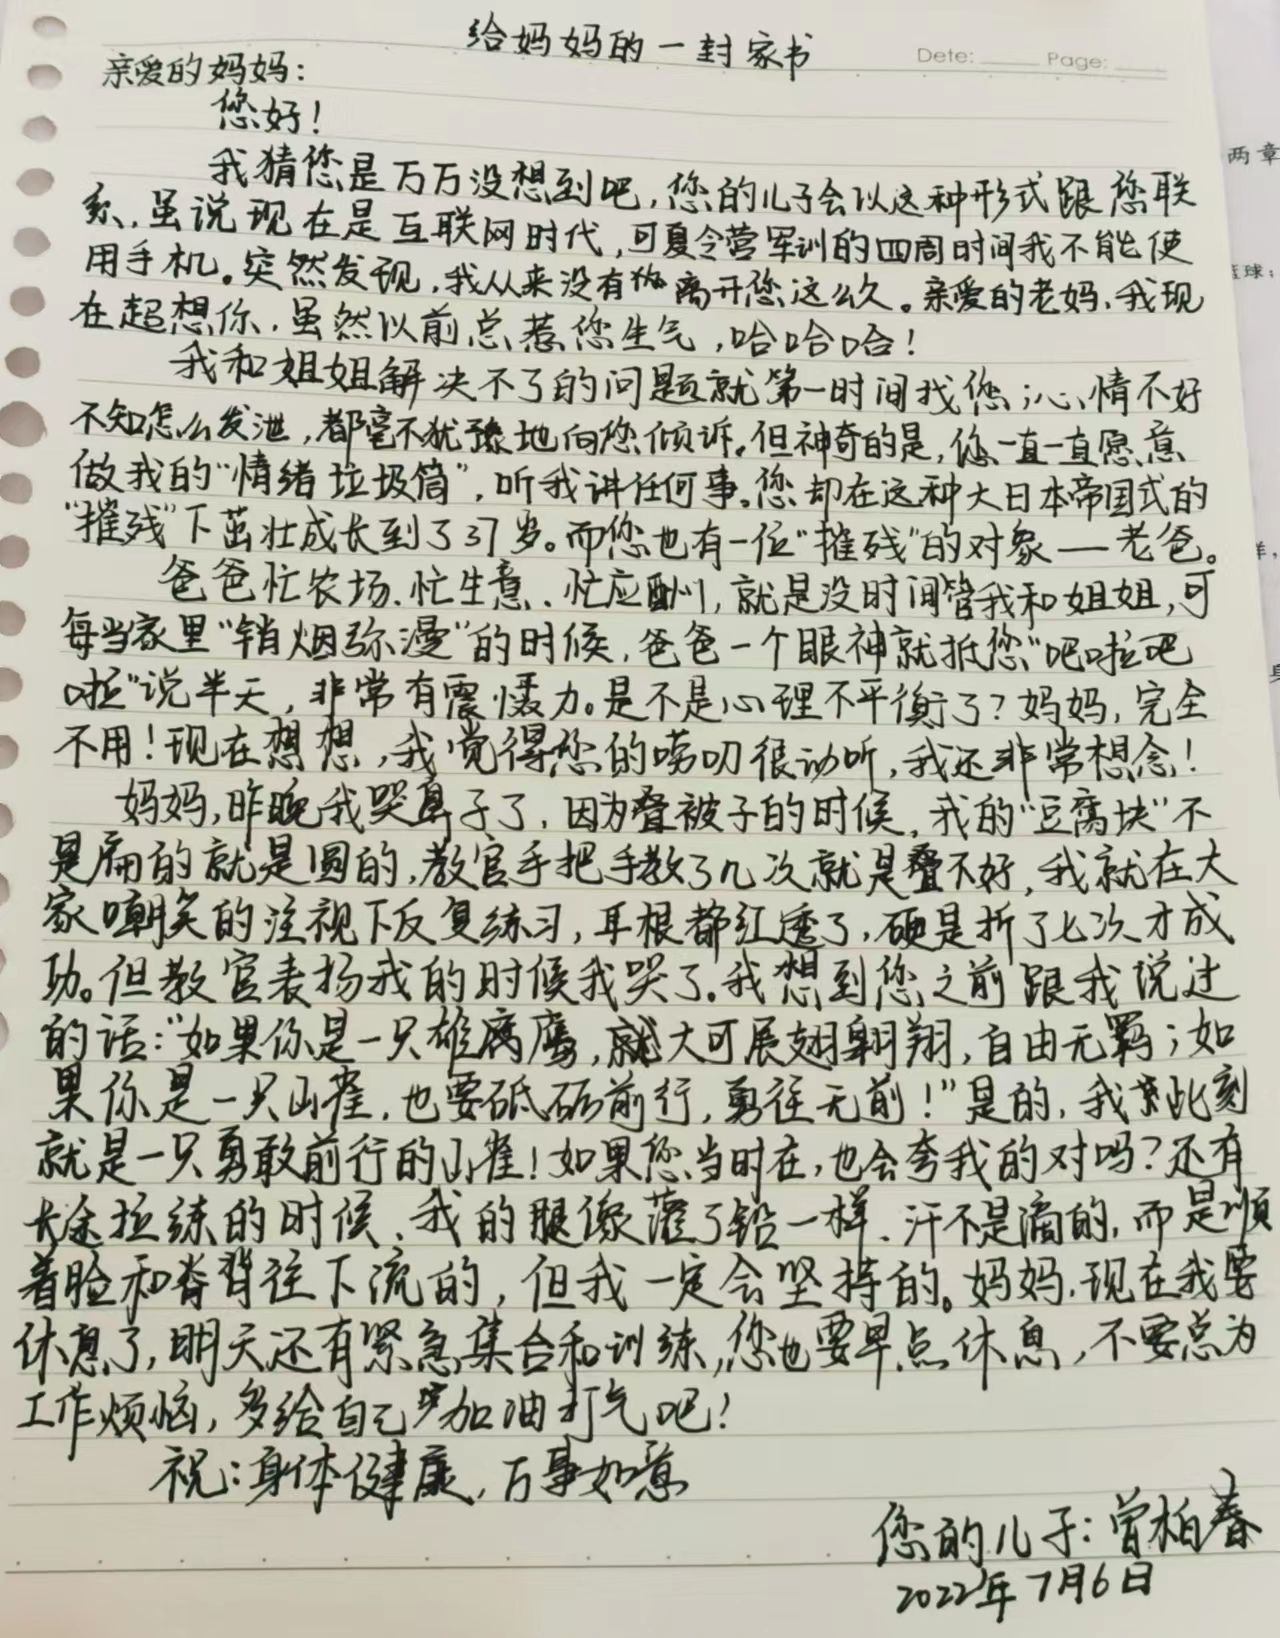 给妈妈的一封家书
Dete: Page:
亲爱的妈妈:
您好!
我猜您是万万没想到吧,您的儿子会以这种形式跟您联
系,虽说现在是互联网时代,可夏令营军训的四周时间我不能使
用手机。突然发现,我从来没有离开您这么久。亲爱的老妈,我现
在超想你,虽然以前总惹您生气,哈哈哈!
我和姐姐解决不了的问题就第一时间找您;心情不好
不知怎么发泄,都毫不犹豫地向您倾诉。但神奇的是,您一直一直愿意
做我的“情绪垃圾筒”,听我讲任何事。您却在这种大日本帝国式的
“摧残”下茁壮成长到了37岁。而您也有一位“摧残”的对象——老爸。
爸爸忙农场、忙生意、忙应酬,就是没时间管我和姐姐,可
每当家里“销烟弥漫”的时候,爸爸一个眼神就抵您“吧啦吧
啦”说半天,非常有震慑力。是不是心理不平衡了?妈妈,完全
不用!现在想想,我觉得您的唠叨很动听,我还非常想念!
妈妈,昨晚我哭鼻子了,因为叠被子的时候,我的“豆腐块”不
是扁的就是圆的,教官手把手教了几次就是叠不好,我就在大
家嘲笑的注视下反复练习,耳根都红透了,硬是折了七次才成
功。但教官表扬我的时候我哭了。我想到您之前跟我说过
的话:“如果你是一只雄鹰,就大可展翅翱翔,自由无羁;如
果你是一只山雀,也要砥砺前行,勇往无前!”是的,我此刻
就是一只勇敢前行的山雀!如果您当时在,也会夸我的对吗?还有
长途拉练的时候,我的腿像灌了铅一样,汗不是滴的,而是顺
着脸和脊背往下流的,但我一定会坚持的。妈妈,现在我要
休息了,明天还有紧急集合和训练,您也要早点休息,不要总为
工作烦恼,多给自己加油打气吧!
祝:身体健康,万事如意
您的儿子:曾柏春
2022年7月6日
两章
球;